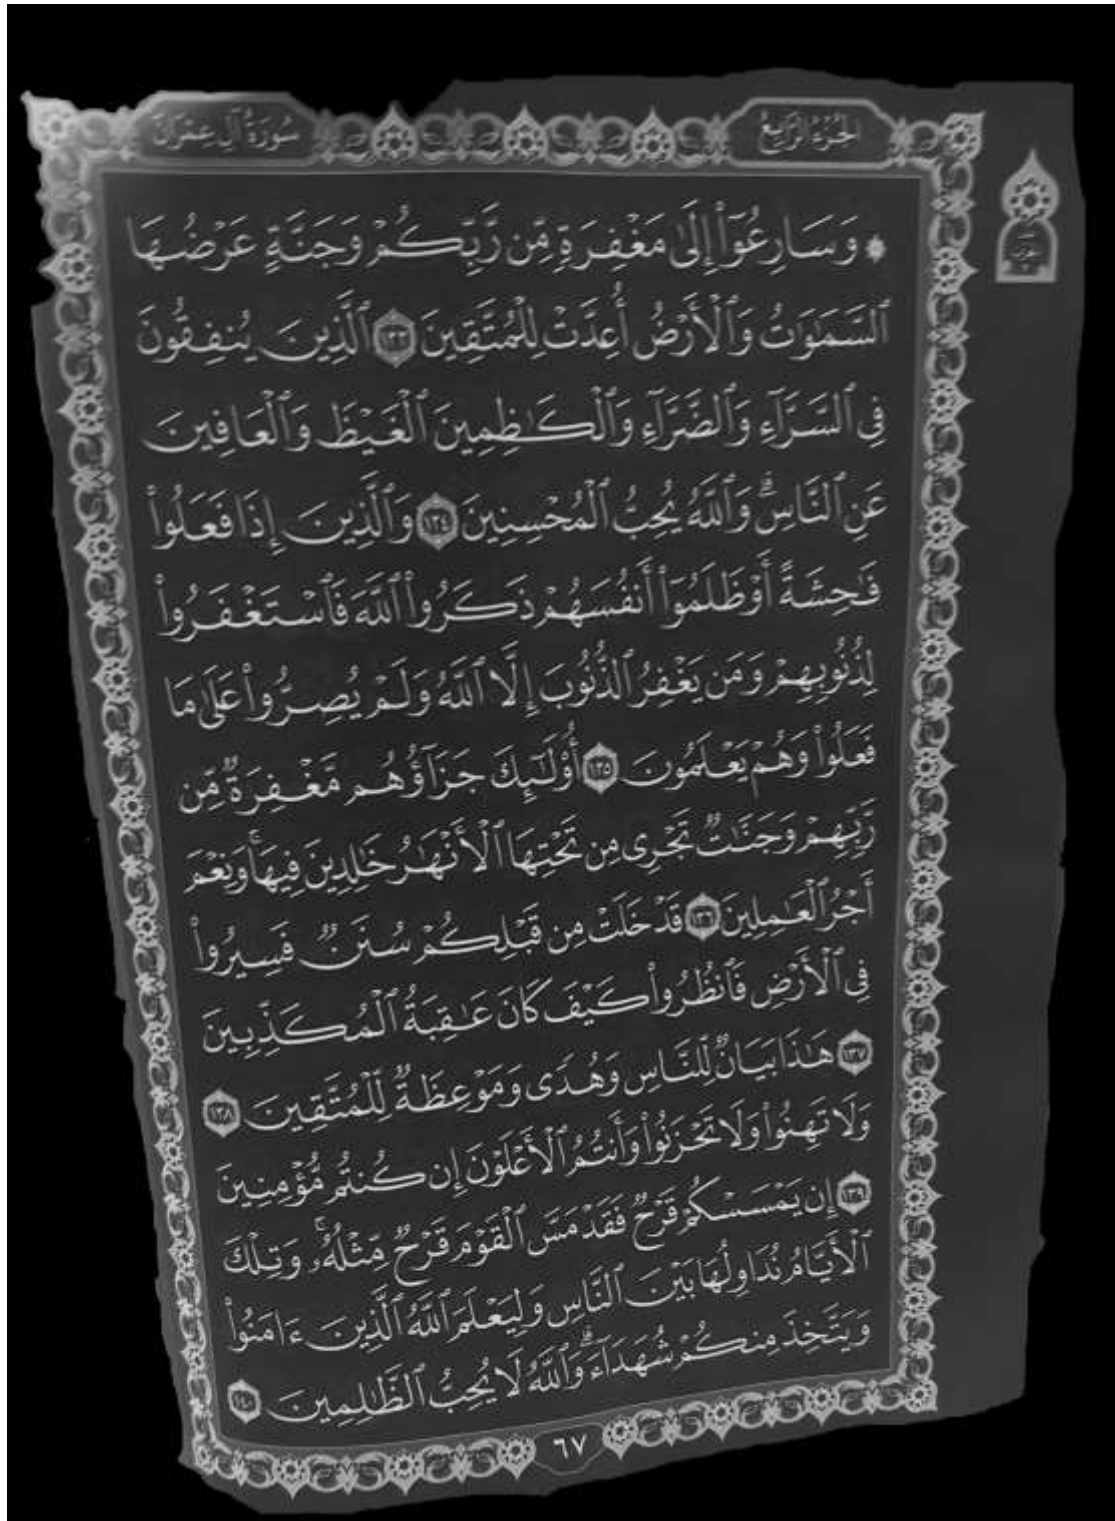 الجُزْءُ الرَّابِعُ
سُورَةُ آلِ عِمْرَانَ
۞ وَسَارِعُوٓاْ إِلَىٰ مَغْفِرَةٖ مِّن رَّبِّكُمْ وَجَنَّةٍ عَرْضُهَا
ٱلسَّمَٰوَٰتُ وَٱلْأَرْضُ أُعِدَّتْ لِلْمُتَّقِينَ ١٣٣ ٱلَّذِينَ يُنفِقُونَ
فِي ٱلسَّرَّآءِ وَٱلضَّرَّآءِ وَٱلْكَٰظِمِينَ ٱلْغَيْظَ وَٱلْعَافِينَ
عَنِ ٱلنَّاسِۗ وَٱللَّهُ يُحِبُّ ٱلْمُحْسِنِينَ ١٣٤ وَٱلَّذِينَ إِذَا فَعَلُواْ
فَٰحِشَةً أَوْ ظَلَمُوٓاْ أَنفُسَهُمْ ذَكَرُواْ ٱللَّهَ فَٱسْتَغْفَرُواْ
لِذُنُوبِهِمْ وَمَن يَغْفِرُ ٱلذُّنُوبَ إِلَّا ٱللَّهُ وَلَمْ يُصِرُّواْ عَلَىٰ مَا
فَعَلُواْ وَهُمْ يَعْلَمُونَ ١٣٥ أُوْلَٰٓئِكَ جَزَآؤُهُم مَّغْفِرَةٞ مِّن
رَّبِّهِمْ وَجَنَّٰتٞ تَجْرِي مِن تَحْتِهَا ٱلْأَنْهَٰرُ خَٰلِدِينَ فِيهَاۚ وَنِعْمَ
أَجْرُ ٱلْعَٰمِلِينَ ١٣٦ قَدْ خَلَتْ مِن قَبْلِكُمْ سُنَنٞ فَسِيرُواْ
فِي ٱلْأَرْضِ فَٱنظُرُواْ كَيْفَ كَانَ عَٰقِبَةُ ٱلْمُكَذِّبِينَ
١٣٧ هَٰذَا بَيَانٞ لِّلنَّاسِ وَهُدٗى وَمَوْعِظَةٞ لِّلْمُتَّقِينَ ١٣٨
وَلَا تَهِنُواْ وَلَا تَحْزَنُواْ وَأَنتُمُ ٱلْأَعْلَوْنَ إِن كُنتُم مُّؤْمِنِينَ
١٣٩ إِن يَمْسَسْكُمْ قَرْحٞ فَقَدْ مَسَّ ٱلْقَوْمَ قَرْحٞ مِّثْلُهُۥۚ وَتِلْكَ
ٱلْأَيَّامُ نُدَاوِلُهَا بَيْنَ ٱلنَّاسِ وَلِيَعْلَمَ ٱللَّهُ ٱلَّذِينَ ءَامَنُواْ
وَيَتَّخِذَ مِنكُمْ شُهَدَآءَۗ وَٱللَّهُ لَا يُحِبُّ ٱلظَّٰلِمِينَ ١٤٠
٦٧